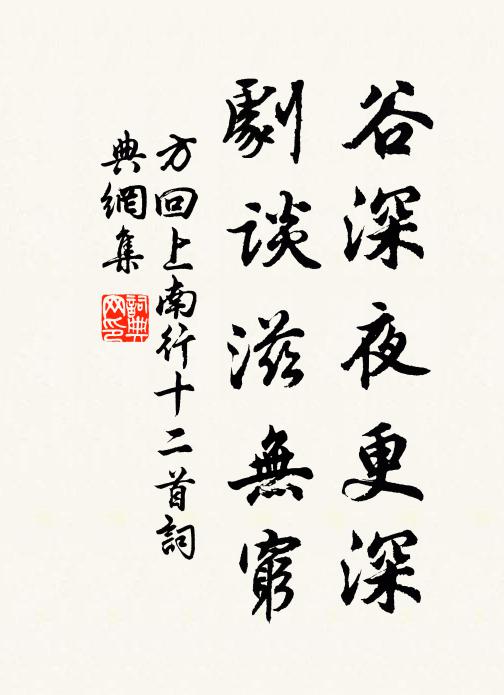 谷深夜更深
劇談滋無窮
方回上南行十二首詞
典網集
詞典
网印